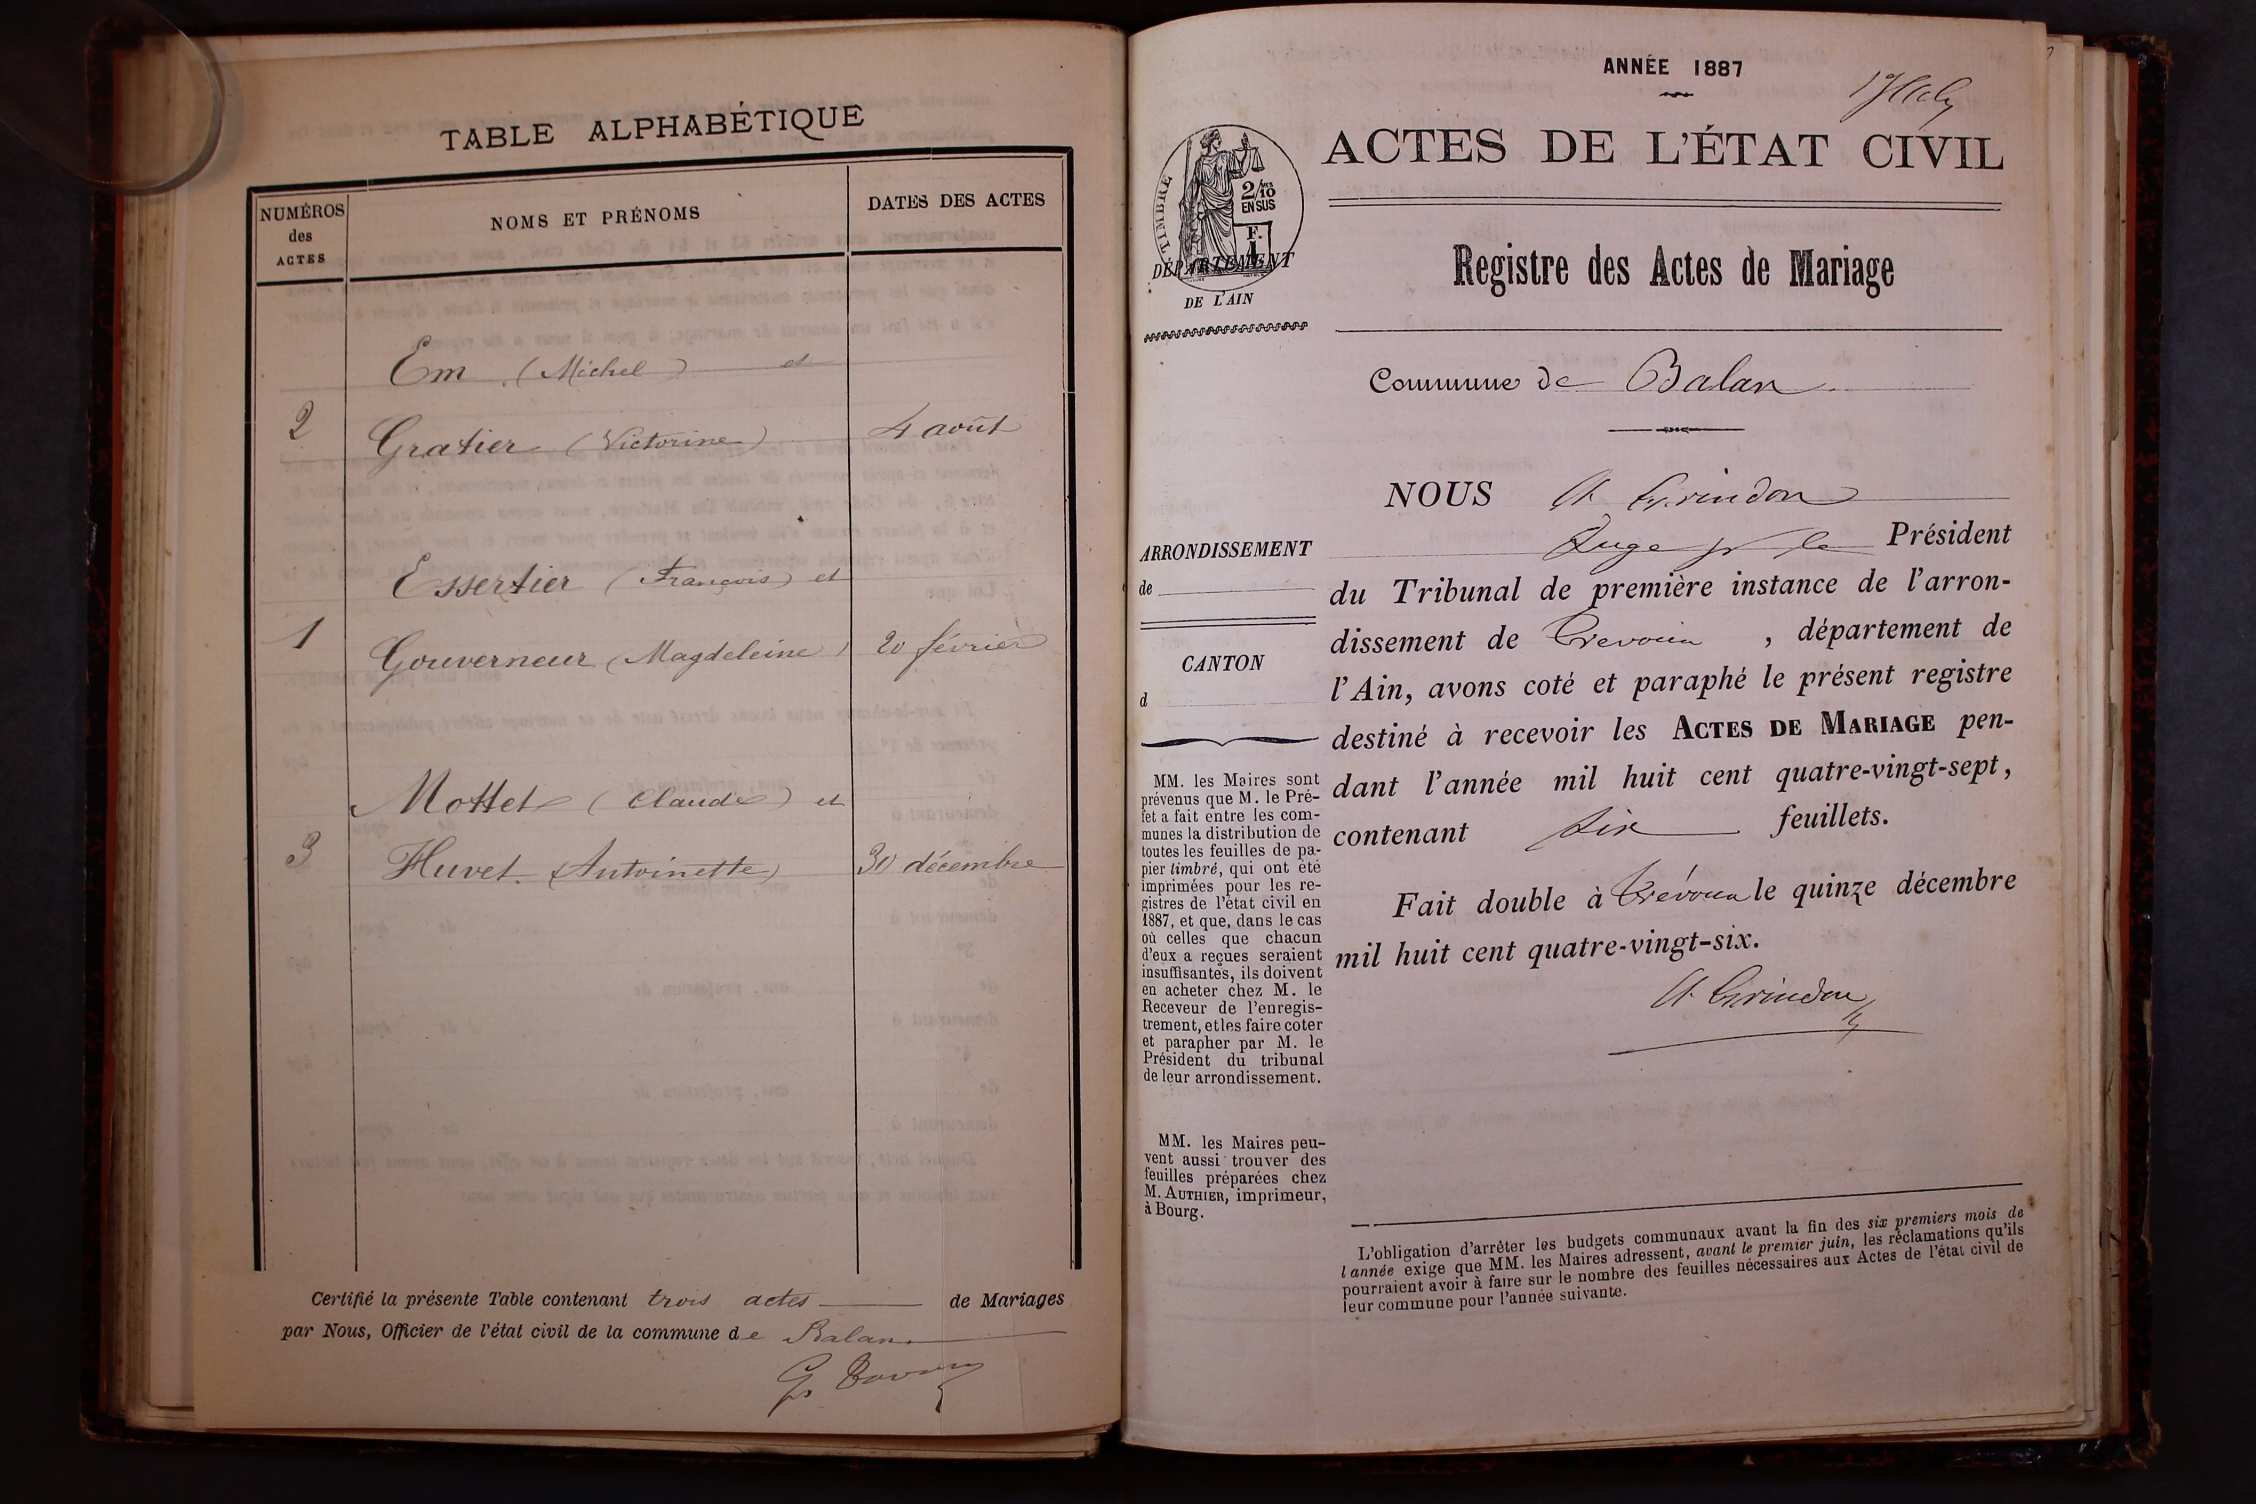 TABLE ALPHABÉTIQUE
NUMÉROS
des
ACTES
NOMS ET PRÉNOMS
DATES DES ACTES
Em (Michel) et
2 Gratier (Victorine) 4 août
Essertier (François) et
1 Gouverneur (Magdeleine) 20 février
Mottet (Claude) et
3 Huvet (Antoinette) 30 décembre
Certifié la présente Table contenant trois actes de Mariages
par Nous, Officier de l'état civil de la commune de Balan
ANNÉE 1887
ACTES DE L'ÉTAT CIVIL
TIMBRE
2/10
EN SUS
F.
1
DÉPARTEMENT
DE L'AIN
Registre des Actes de Mariage
Commune de Balan
ARRONDISSEMENT
de
CANTON
d
MM. les Maires sont
prévenus que M. le Pré-
fet a fait entre les com-
munes la distribution de
toutes les feuilles de pa-
pier timbré, qui ont été
imprimées pour les re-
gistres de l'état civil en
1887, et que, dans le cas
où celles que chacun
d'eux a reçues seraient
insuffisantes, ils doivent
en acheter chez M. le
Receveur de l'enregis-
trement, et les faire coter
et parapher par M. le
Président du tribunal
de leur arrondissement.
MM. les Maires peu-
vent aussi trouver des
feuilles préparées chez
M. AUTHIER, imprimeur,
à Bourg.
NOUS A. Grindon
Juge pr le Président
du Tribunal de première instance de l'arron-
dissement de Trévoux, département de
l'Ain, avons coté et paraphé le présent registre
destiné à recevoir les ACTES DE MARIAGE pen-
dant l'année mil huit cent quatre-vingt-sept,
contenant six feuillets.
Fait double à Trévoux le quinze décembre
mil huit cent quatre-vingt-six.
A. Grindon
L'obligation d'arrêter les budgets communaux avant la fin des six premiers mois de
l'année exige que MM. les Maires adressent, avant le premier juin, les réclamations qu'ils
pourraient avoir à faire sur le nombre des feuilles nécessaires aux Actes de l'état civil de
leur commune pour l'année suivante.